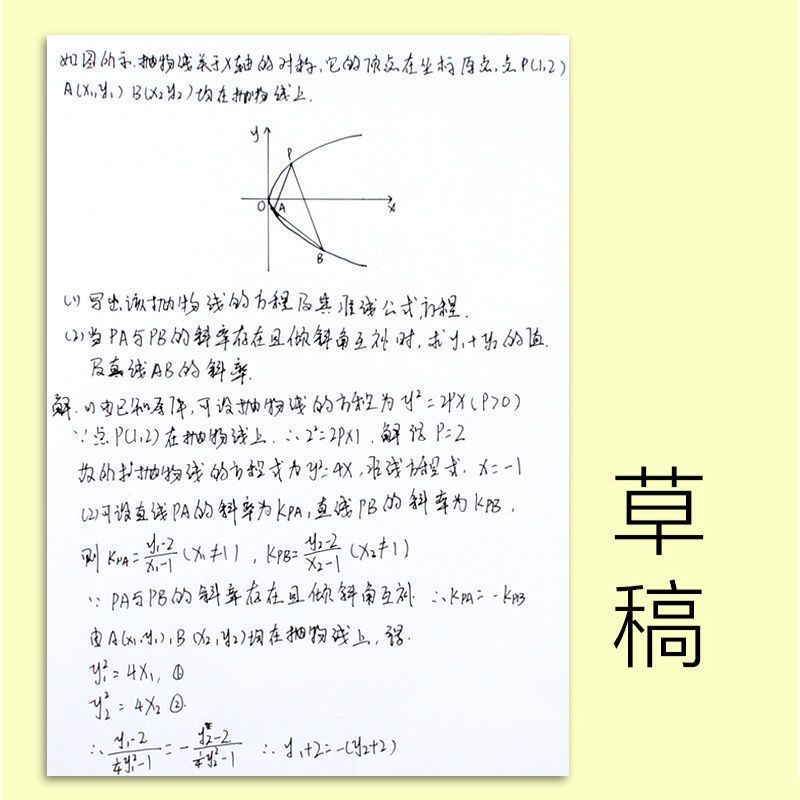 如图所示.抛物线关于x轴的对称,它的顶点在坐标原点,点P(1,2)
A(x₁,y₁) B(x₂y₂)均在抛物线上.
y
P
O
A
x
B
(1) 写出该抛物线的方程及其准线公式方程.
(2)当PA与PB的斜率存在且倾斜角互补时,求y₁+y₂的值
及直线AB的斜率.
解.(1)由已知条件,可设抛物线的方程为y²=2px(P>0)
∵点P(1,2)在抛物线上.∴2²=2P×1,解得P=2
故所求抛物线的方程式为y²=4x,准线方程式.x=-1
(2)可设直线PA的斜率为KPA,直线PB的斜率为KPB,
则KPA=y₁-2/x₁-1(x₁≠1),KPB=y₂-2/x₂-1(x₂≠1)
∵PA与PB的斜率存在且倾斜角互补.∴KPA=-KPB
由A(x₁,y₁),B(x₂,y₂)均在抛物线上,得.
y₁²=4x₁,①
y₂²=4x₂②.
∴y₁-2/¼y₁²-1=-y₂-2/¼y₂²-1 ∴y₁+2=-(y₂+2)
草
稿